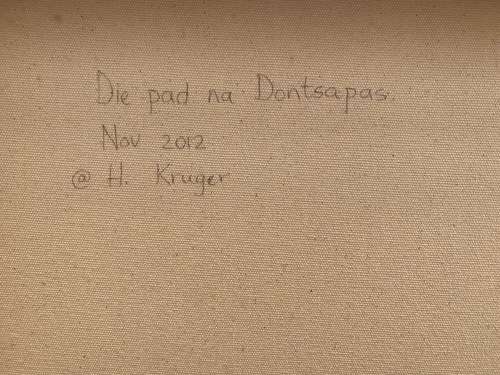 Die pad na Dontsapas.
Nov 2012
@ H. Kruger